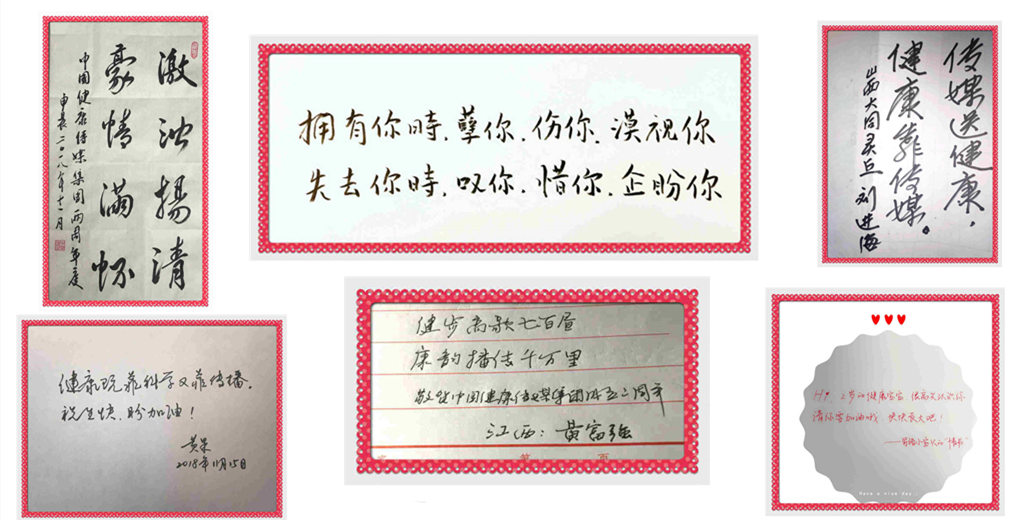 激浊扬清
豪情满怀
中国健康传媒集团两周年庆
二〇一八年十一月
拥有你時.孽你.伤你.漠視你
失去你時.叹你.惜你.企盼你
传媒送健康，
健康靠传媒。
山西大同灵丘 刘进海
健康既靠科学又靠传播，
祝生快，盼加油！
2018年11月15日
健步高歌七百昼
康韵播传千万里
敬贺中国健康传媒集团成立二周年
江西：黄富强
第 页
Hi，2岁的健康宝宝，很高兴认识你
请你多加油哦，快快长大吧！
Have a nice day